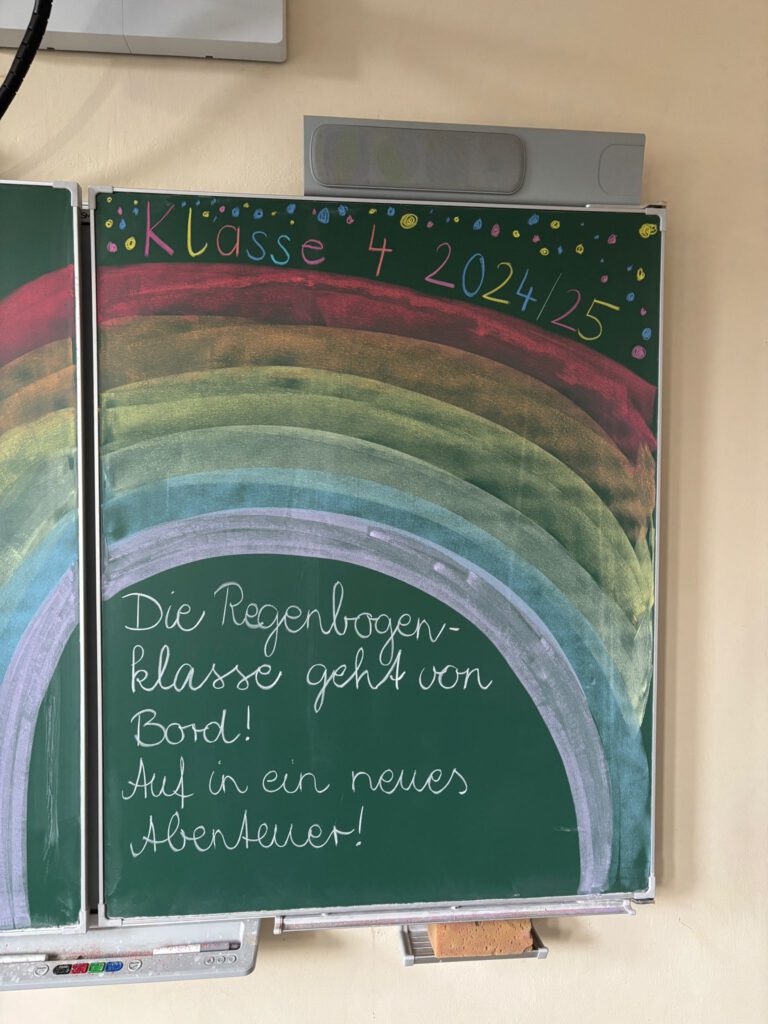 Klasse 4 2024/25
Die Regenbogen-
klasse geht von
Bord!
Auf in ein neues
Abenteuer!